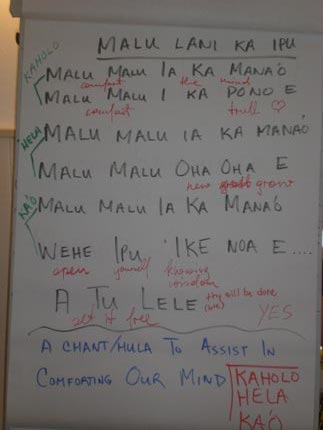 MALU LANI KA IPU
KAHOLO
MALU MALU IA KA MANA'O
comfort the mind
MALU MALU I KA PONO E
comfort truth
HELA
MALU MALU IA KA MANA'O
MALU MALU OHA OHA E
new growth grow
KA'O
MALU MALU IA KA MANA'O
WEHE IPU 'IKE NOA E ....
open yourself knowing wisdom
A TU LELE
thy will be done
set it free
YES
A CHANT/HULA TO ASSIST IN
COMFORTING OUR MIND
KAHOLO
HELA
KA'O